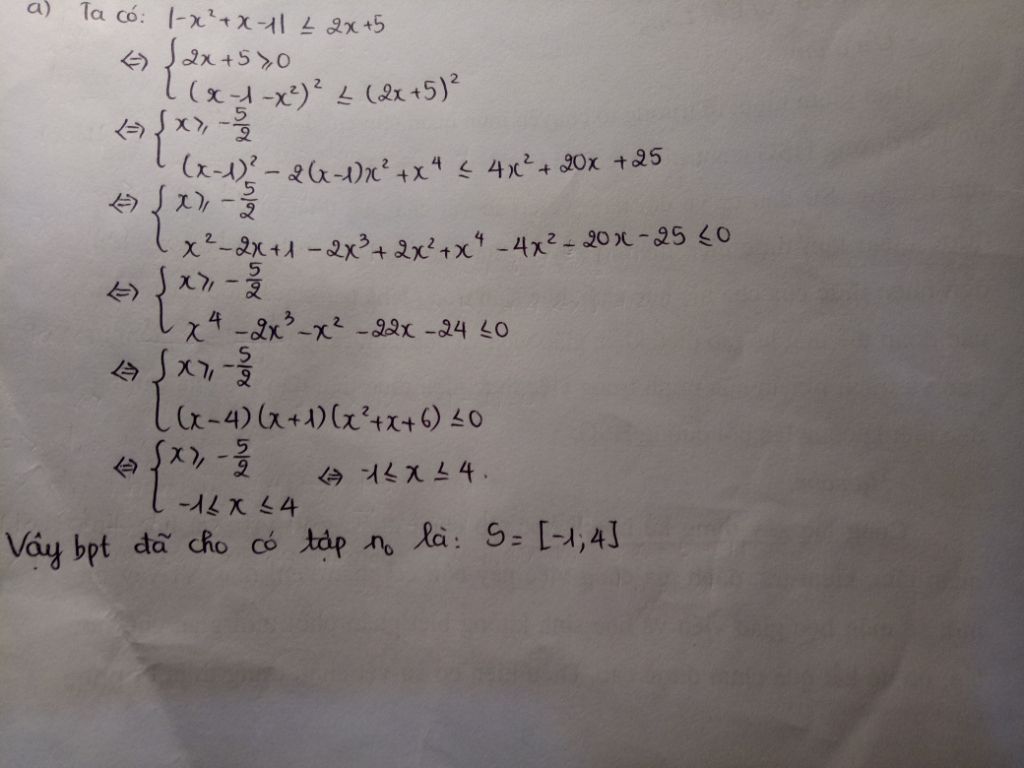 a) Ta có: |-x² + x - 1| ≤ 2x+5
⇔ { 2x + 5 ≥ 0
(x - 1 - x²)² ≤ (2x+5)²
⇔ { x ≥ -5/2
(x-1)² - 2(x-1)x² + x⁴ ≤ 4x² + 20x + 25
⇔ { x ≥ -5/2
x² - 2x + 1 - 2x³ + 2x² + x⁴ - 4x² - 20x - 25 ≤ 0
⇔ { x ≥ -5/2
x⁴ - 2x³ - x² - 22x - 24 ≤ 0
⇔ { x ≥ -5/2
(x-4)(x+1)(x²+x+6) ≤ 0
⇔ { x ≥ -5/2 ⇔ -1 ≤ x ≤ 4.
-1 ≤ x ≤ 4
Vậy bpt đã cho có tập n₀ là: S = [-1;4]